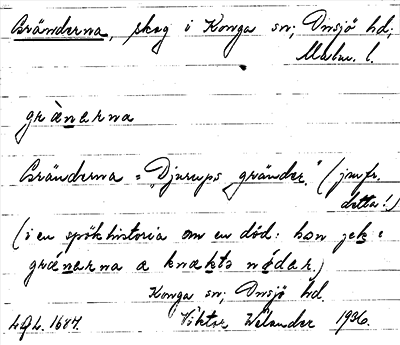 Gränderna, skog i Konga sn, Onsjö hd,
Malm. l.
grànarna
Gränderna = "Djurups gränder." (jmfr.
detta!)
(i en spökhistoria om en död: hon jek i
grànarna a knakte nédar.)
Konga sn, Onsjö hd.
LAL. 1687. Viktor Welander 1936.